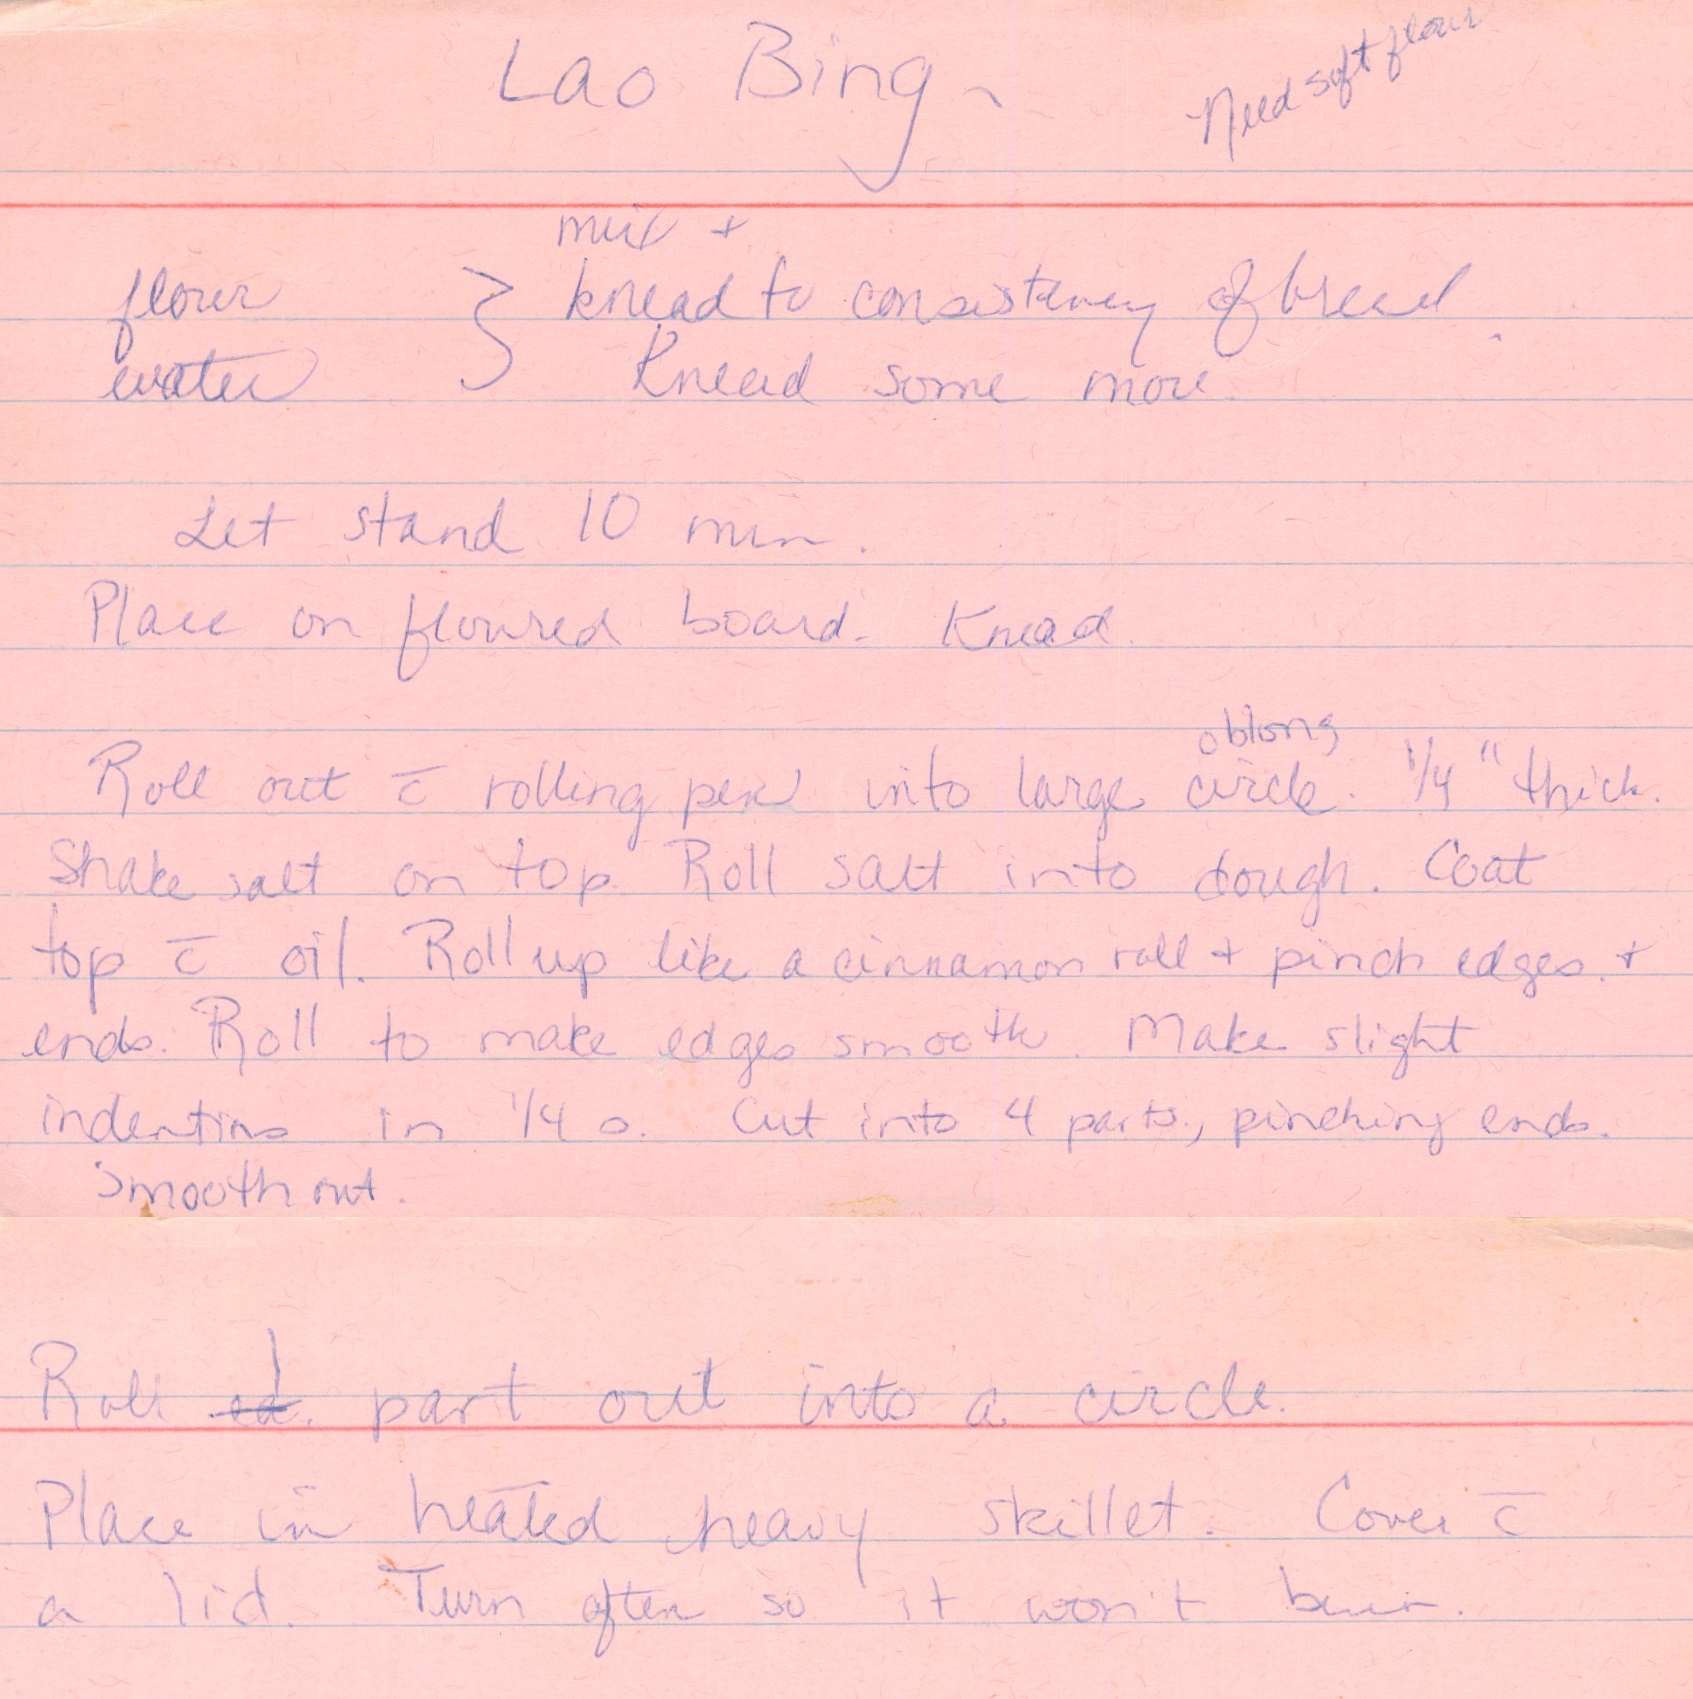 Lao Bing
Need soft flour
mix +
flour } knead to consistency of bread.
water Knead some more.
Let stand 10 min.
Place on floured board. Knead.
oblong
Roll out c̄ rolling pin into large circle. 1/4" thick.
Shake salt on top. Roll salt into dough. Coat
top c̄ oil. Roll up like a cinnamon roll + pinch edges +
ends. Roll to make edges smooth. Make slight
indentins in 1/4 s. Cut into 4 parts, pinching ends.
Smooth out.
Roll 1 part out into a circle.
Place in heated heavy skillet. Cover c̄
a lid. Turn often so it won't burn.